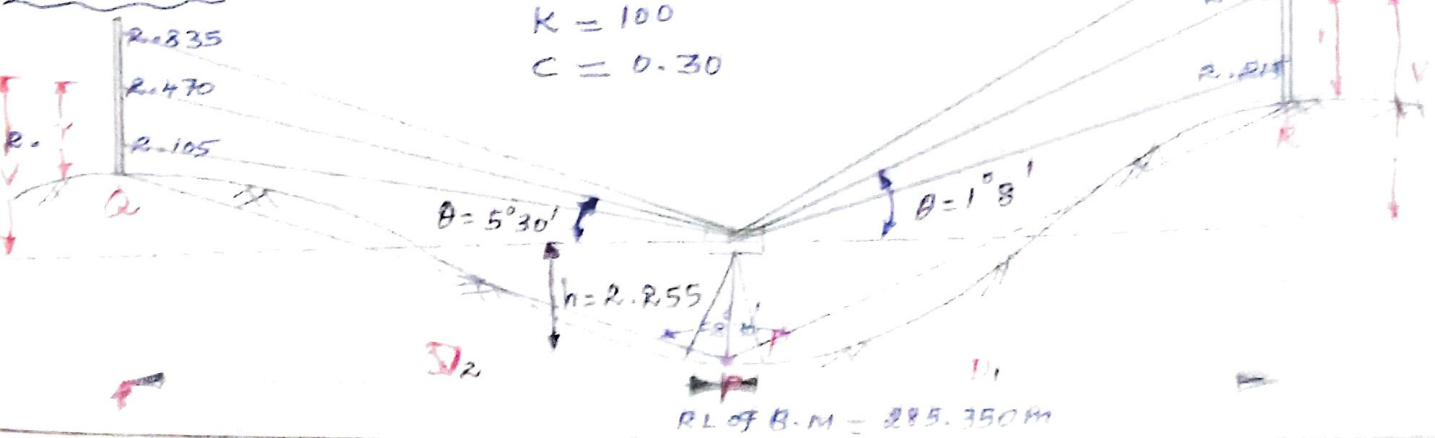 K = 100
C = 0.30
2.835
2.470
2.105
r
V
Q
θ = 5°30'
θ = 1°8'
h = 2.255
R
V
D2
D1
P
RL of B.M = 285.350m